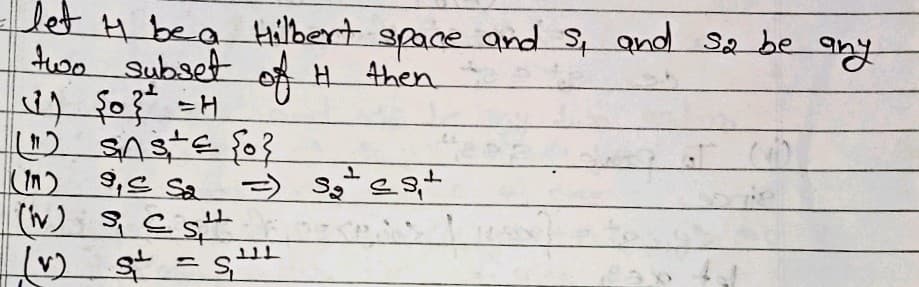 let H be a Hilbert space and S₁ and S₂ be any
two subset of H then
(i) {0}^⊥ = H
(ii) S₁∩S₁^⊥ ⊆ {0}
(iii) S₁ ⊆ S₂ ⇒ S₂^⊥ ⊆ S₁^⊥
(iv) S₁ ⊆ S₁^⊥⊥
(v) S₁^⊥ = S₁^⊥⊥⊥